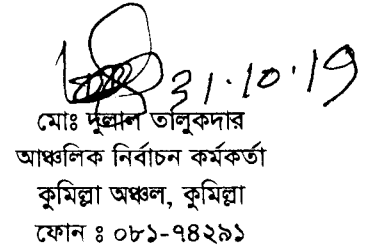 31.10.19
মোঃ দুলাল তালুকদার
আঞ্চলিক নির্বাচন কর্মকর্তা
কুমিল্লা অঞ্চল, কুমিল্লা
ফোন ঃ ০৮১-৭৪২৯১